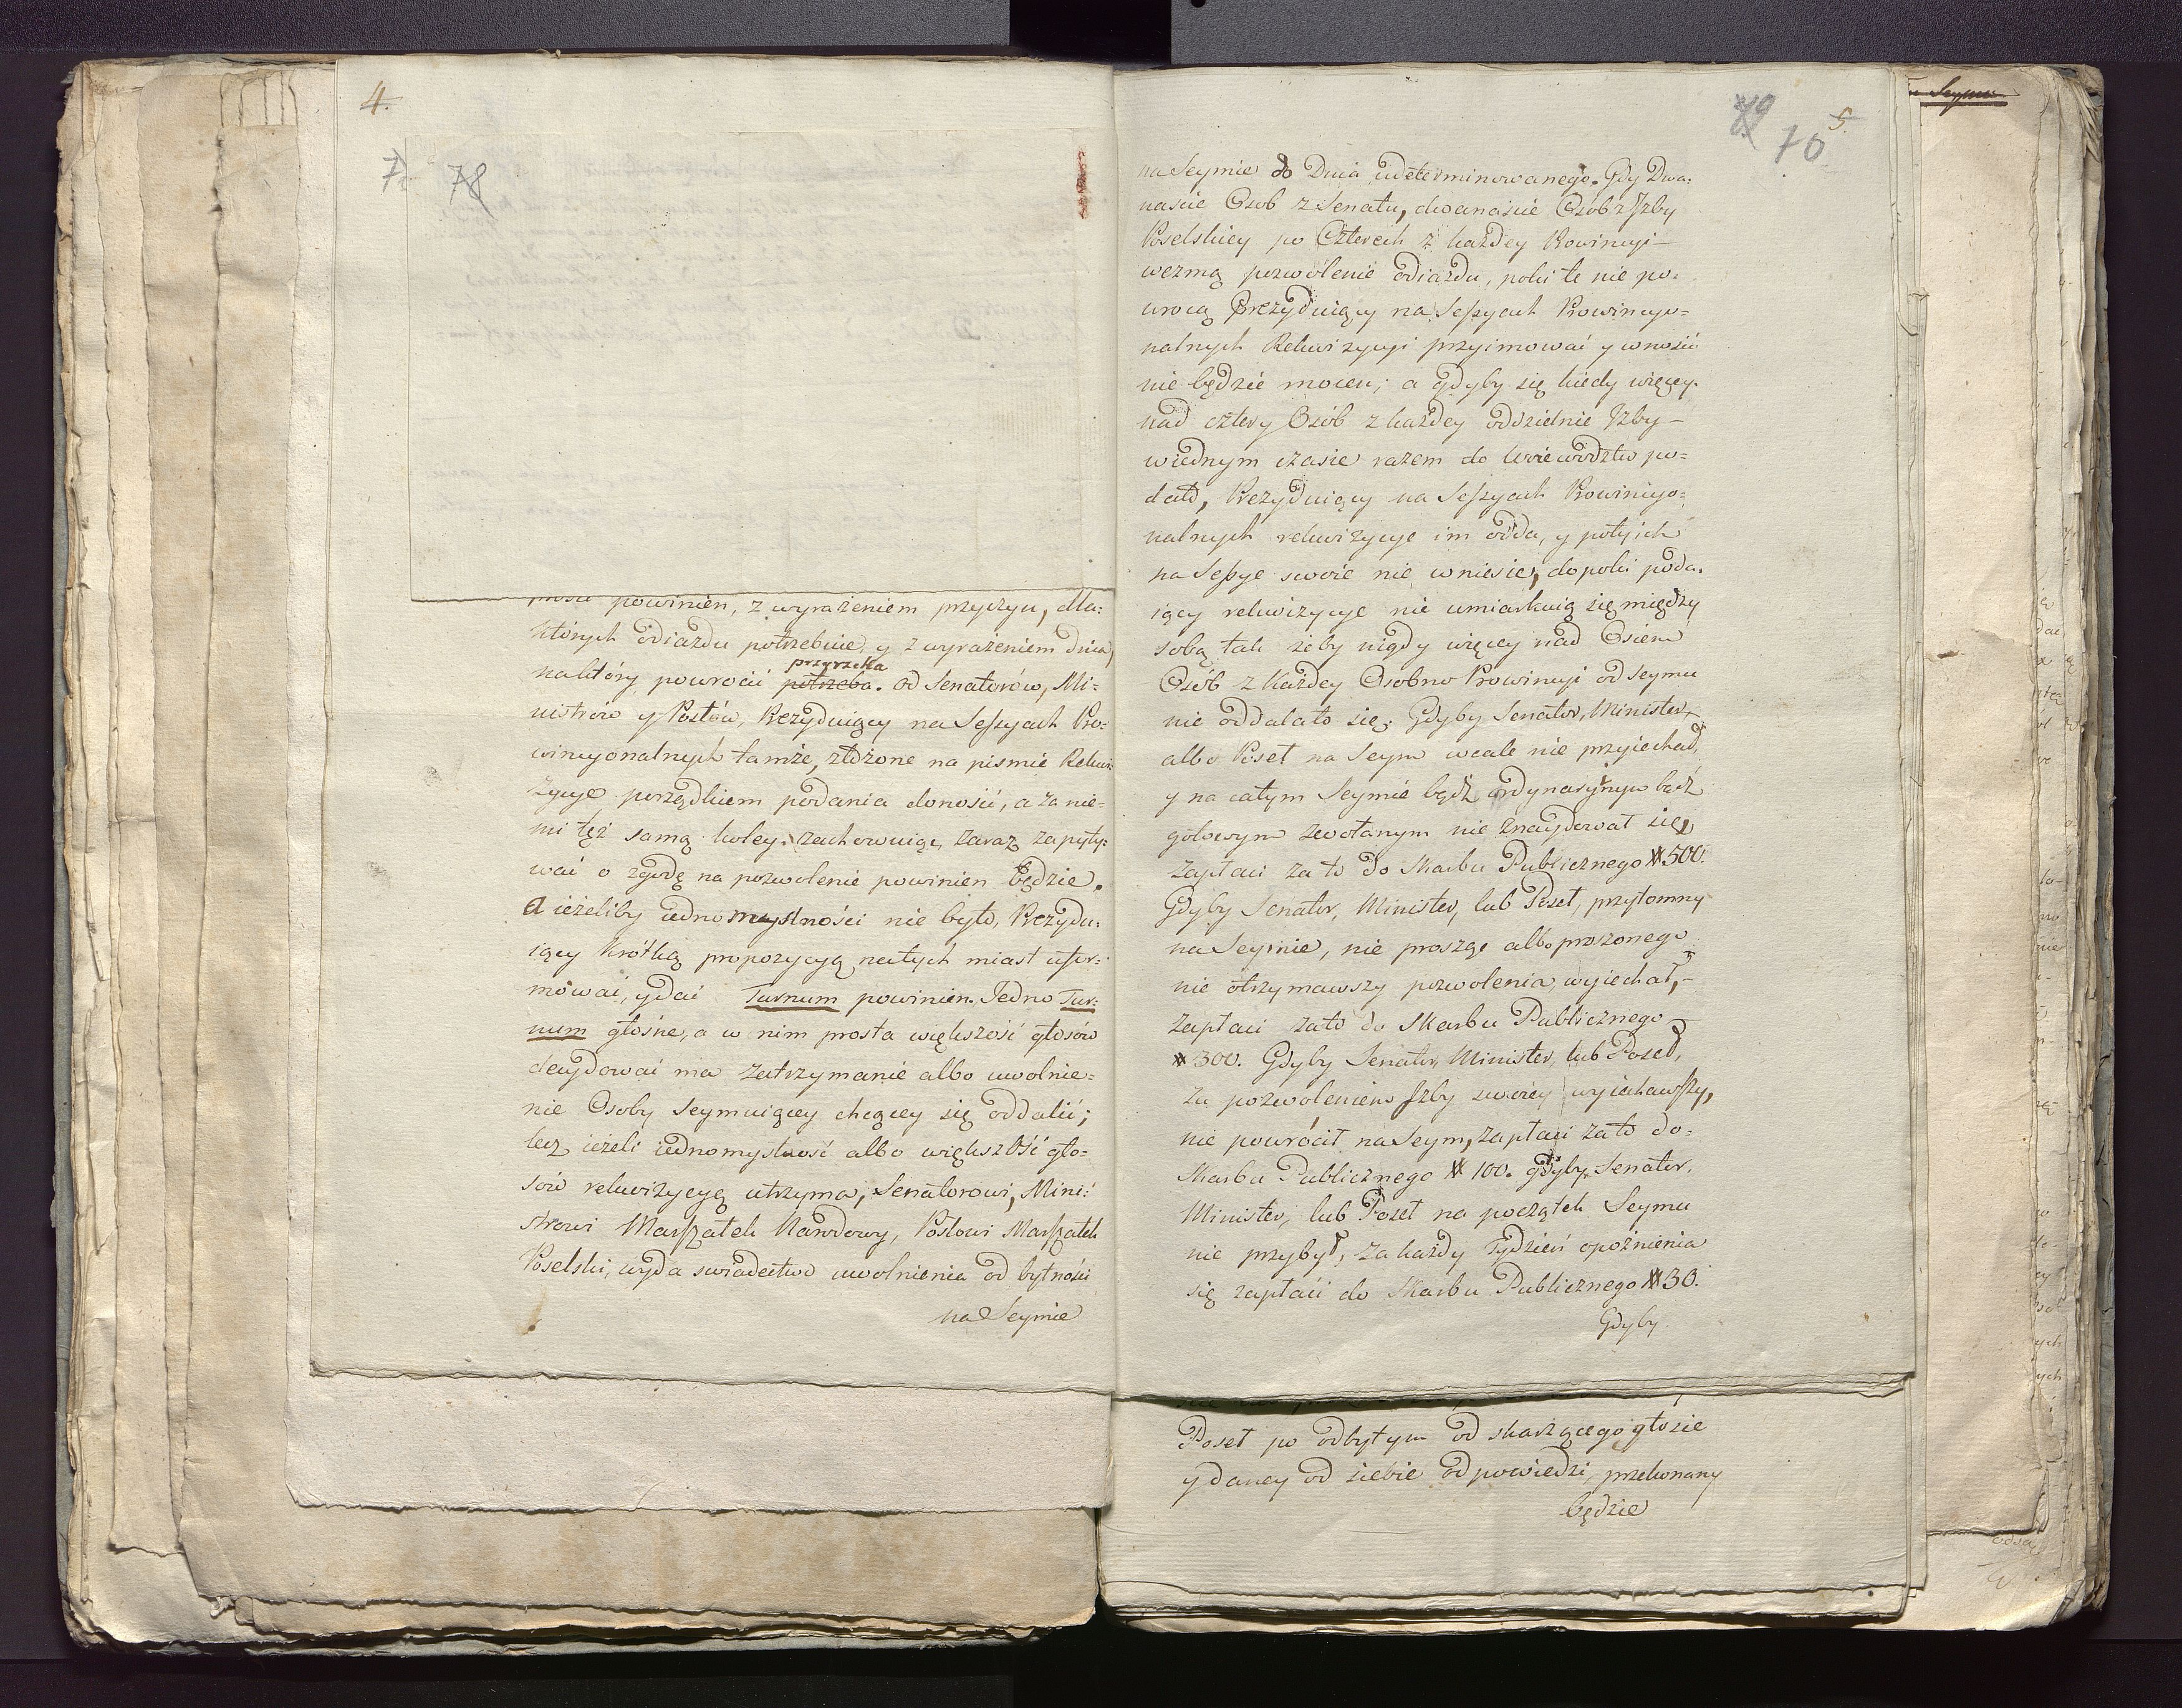 4.
7
78
powinien, z wyrażeniem przyczyn, dla:
których odiazdu potrzebuie, y z wyrażeniem dnia,
na który powrocić potrzeba. od Senatorów, Mi:
przyrzeka
nistrów y Posłów, Prezyduiący na Sessyach Pro:
wincyonalnych tamże, złożone na pismie Rekwi:
zycye porządkiem podania donosić, a za nie:
mi tęż samą koley zachowuiąc, zaraz zapyty:
wać o zgodę na pozwolenie powinien będzie.
A ieżeliby iednomyslności nie było, Prezydu:
iący krótką propozycyą natych miast ufor:
mować, y dać Turnum powinien. Jedno Tur:
num głośne, a w nim prosta większość głosów
decydować ma zatrzymanie albo uwolnie:
nie Osoby Seymuiącey chcącey się oddalić;
lecz ieżeli iednomyslność albo większość gło:
sów rekwizycyą utrzyma, Senatorowi, Mini:
strowi Marszałek Narodowy, Posłowi Marszałek
Poselski, wyda swiadectwo uwolnienia od bytności
na Seymie
79
70
5.
na Seymie do Dnia udeterminowanego. Gdy Dwa:
naście Osob z Senatu, dwanaście Osob z Jzby
Poselskiey po Czterech z każdey Prowincyi
wezmą pozwolenie odiazdu, poki te nie po:
wrocą Prezyduiący na Sessyach Prowincyo=
nalnych Rekwizycyi przyimować y wnosić
nie będzie mocen; a gdyby się kiedy więcey
nad cztery Osób z każdey oddzielnie Jzby
wiednym czasie razem do Woiewodztw po=
dało, Prezyduiący na Sessyach Prowincyo:
nalnych rekwizycye im odda, y póty ich
na Sessye swoie nie wniesie, dopoki poda:
iący rekwizycye nie umiarkuią się między
sobą tak żeby nigdy więcey nad Osiem
Osób z Każdey Osobno Prowincyi od Seymu
nie oddalało się. Gdyby Senator, Minister,
albo Poseł na Seym wcale nie przyiechał,
y na całym Seymie bądź ordynaryinym bądź
gotowym zwołanym nie znaydował się,
zapłaci za to do Skarbu Publicznego # 500.
Gdyby Senator, Minister, lub Poseł, przytomny
na Seymie, nie prosząc albo proszonego
nie otrzymawszy pozwolenia, wyiechał,
zapłaci zato do Skarbu Publicznego
# 300. Gdyby Senator, Minister, lub Poseł,
za pozwoleniem Jzby swoiey wyiechawszy,
nie powrócił na Seym, zapłaci zato do:
Skarbu Publicznego # 100. gdyby Senator,
Minister, lub Poseł na początek Seymu
nie przybył, za każdy Tydzień opoźnienia
się zapłaci do Skarbu Publicznego # 30.
Gdyby
Poseł po odbytym od skarżącego głosie
y daney od siebie odpowiedzi, przekonany
będzie
Seymu